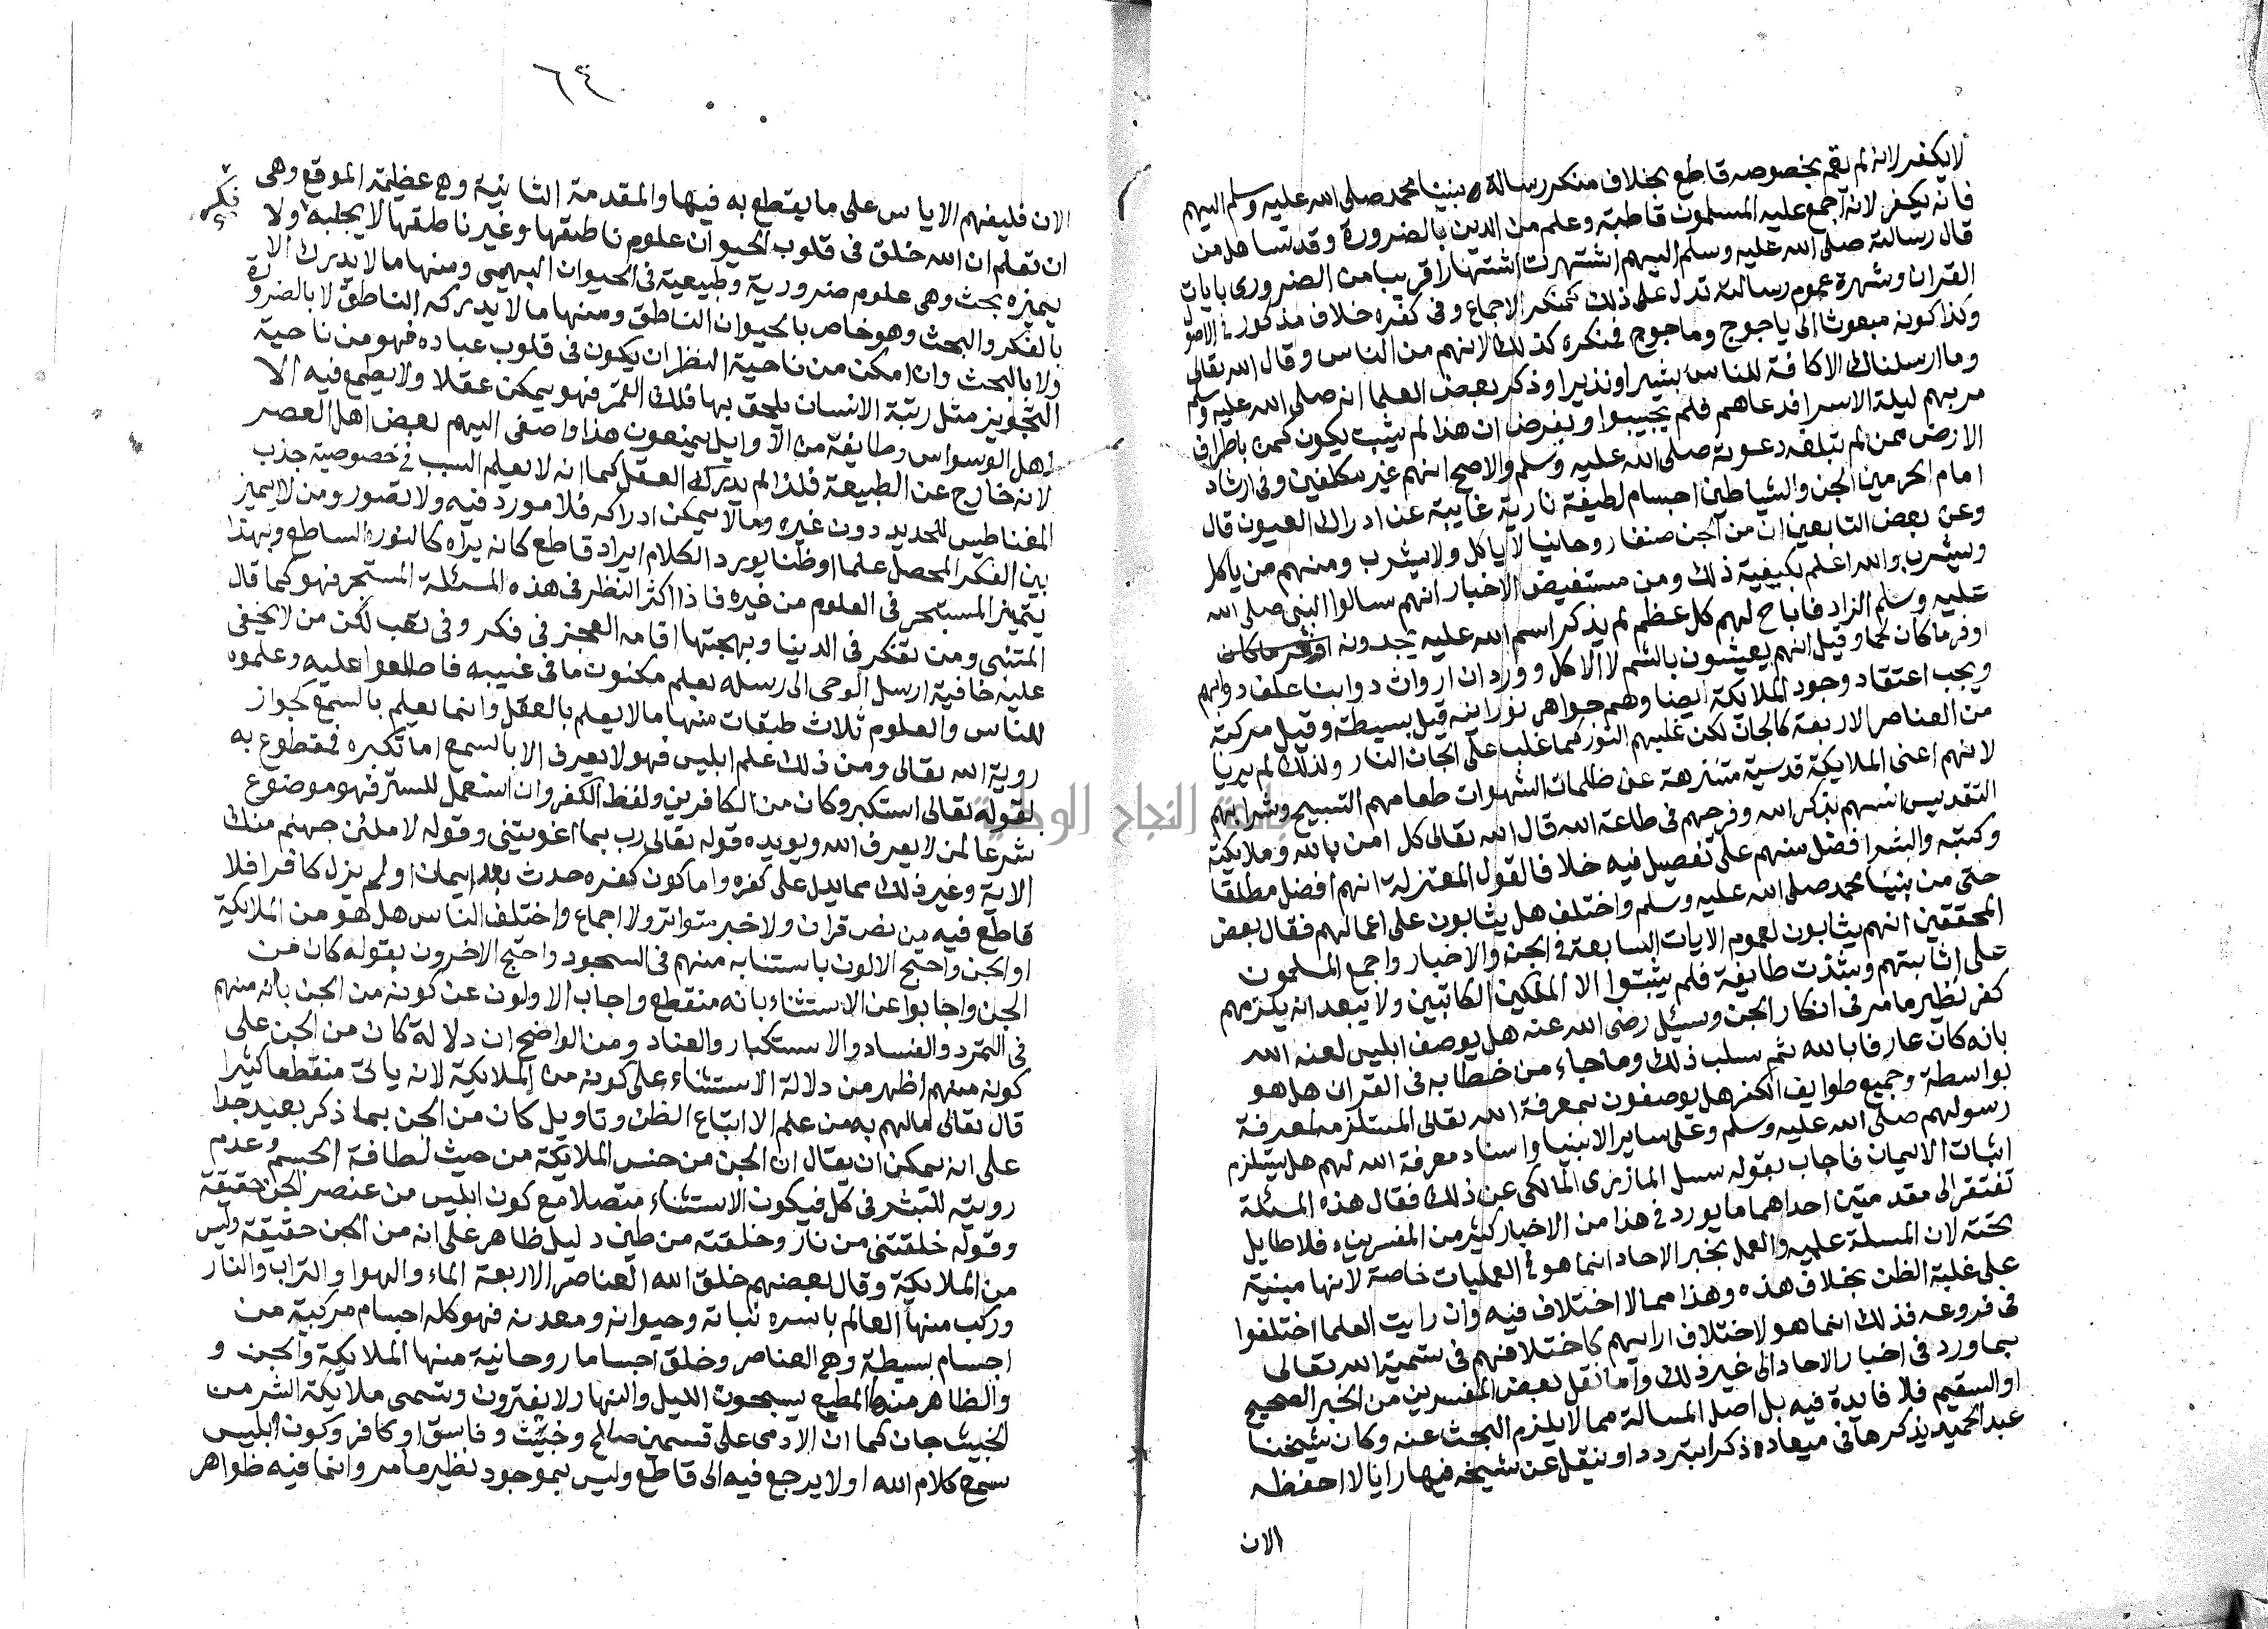 لا يكفر لانه لم يقم بخصوصه قاطع بخلاف منكر رسالة نبينا محمد صلى الله عليه وسلم اليهم
فانه يكفر لانه اجمع عليه المسلمون قاطبة وعلم من الدين بالضرورة وقد تساهل من
قال رسالته صلى الله عليه وسلم اليهم اشتهرت اشتهارا قريبا من الضرورى بايات
القران وشهرة عموم رسالته تدل على ذلك كمنكر الاجماع وفى كفره خلاف مذكور فى الاصول
وكذا كونه مبعوثا الى ياجوج وماجوج فمنكره كذلك لانهم من الناس وقال الله تعالى
وما ارسلناك الا كافة للناس بشيرا ونذيرا وذكر بعض العلما انه صلى الله عليه وسلم
مر بهم ليلة الاسرا فدعاهم فلم يجيبوا وبفرض ان هذا لم يثبت يكون كمن باطراف
الارض ممن لم تبلغه دعوته صلى الله عليه وسلم والاصح انهم غير مكلفين وفى ارشاد
امام الحرمين الجن والشياطين اجسام لطيفة نارية غايبة عن ادراك العيون قال
وعن بعض التابعين ان من الجن صنفا روحانيا لا ياكل ولا يشرب ومنهم من ياكل
ويشرب والله اعلم بكيفية ذلك ومن مستفيض الاخبار انهم سالوا النبى صلى الله
عليه وسلم الزاد فاباح لهم كل عظم لم يذكر اسم الله عليه يجدونه
اوفر ما كان لحما وقيل انهم يعيشون بالشم لا الاكل وورد ان ارواث دوابنا علف دوابهم
ويجب اعتقاد وجود الملايكة ايضا وهم جواهر نورانيه قيل بسيطة وقيل مركبة
من العناصر الاربعة كالجان لكن غلبهم النور كما غلب على الجان النار ولذلك لم يريا
لانهم اعنى الملايكة قدسية متنزهة عن ظلمات الشهوات طعامهم التسبيح وشرابهم
التقديس انسهم بذكر الله وفرحهم فى طاعة الله قال الله تعالى كل امن بالله وملايكته
وكتبه والبشر افضل منهم على تفصيل فيه خلافا لقول المعتزلة انهم افضل مطلقا
حتى من نبينا محمد صلى الله عليه وسلم واختلف هل يثابون على اعمالهم فقال بعض
المحققين انهم يثابون لعموم الايات السابعة فى الجن والاخبار واجمع المسلمون
على اثابتهم وشذت طايفة فلم يثبتوا الا الملكين الكاتبين ولا يبعد انه يلزمهم
كفر نظير ما مر فى انكار الجن وسيئل رضى الله عنه هل يوصف ابليس لعنه الله
بانه كان عارفا بالله ثم سلب ذلك وما جاء من خطابه فى القران هل هو
بواسطة وجميع طوايف الكفر هل يوصفون بمعرفة الله تعالى المستلزمة لمعرفة
رسولهم صلى الله عليه وسلم وعلى ساير الانبيا واسناد معرفة الله لهم هل يستلزم
اثبات الايمان فاجاب بقوله سسل المازرى المالكى عن ذلك فقال هذه المسئلة
تفتقر الى مقدمتين احداهما ما يورد فى هذا من الاخبار كثير من المفسرين فلا طايل
تحته لان المسلة علميه والعمل بخبر الاحاد انما هو فى العمليات خاصة لانها مبنية
على غلبة الظن بخلاف هذه وهذا مما لا اختلاف فيه وان رايت العلما اختلفوا
فى فروعه فذلك انما هو لاختلاف ارايهم كاختلافهم فى تسمية الله تعالى
بما ورد فى اخبار الاحاد الى غير ذلك واما نقل بعض المفسرين من الخبر الصحيح
او السقيم فلا فايدة فيه بل اصل المسالة مما لا يلزم البحث عنه وكان شيخنا
عبد الحميد يذكرها فى ميعاده ذكرا بتردد او ينقل عن شيخه فيها رايا لا احفظه
الان
٦٤
الان فليفهم الاياس على ما يقطع به فيها والمقدمة الثانية وهى عظيمة الموقع وهى
ان تعلم ان الله خلق فى قلوب الحيوان علوم ناطقها وغير ناطقها لا يجلبه فكر ولا
يميزه بحث وهى علوم ضرورية وطبيعية فى الحيوان البهيمى ومنها ما لا يدرك الا
بالفكر والبحث وهو خاص بالحيوان الناطق ومنها ما لا يدركه الناطق لا بالضرورة
ولا بالبحث وان امكن من ناحية النظر ان يكون فى قلوب عباده فهو من ناحية
التجويز مثل رتبة الانسان يلحق بها فلك القمر فهو يمكن عقلا ولا يطمع فيه الا
اهل الوسواس وطايفة من الاوايل يمنعون هذا واصغى اليهم بعض اهل العصر
لانه خارج عن الطبيعة فلذا لم يدرك العقل كما انه لا يعلم السبب فى خصوصية جذب
المغناطيس للحديد دون غيره وما لا يمكن ادراكه فلا مورد فيه ولا تصور ومن لا يميز
بين الفكر المحصل علما او ظنا يورد الكلام ايراد قاطع كانه يراه كالنور الساطع وبهذا
يتميز المستبحر فى العلوم من غيره فاذا اكثر النظر فى هذه المسئلة المستبحر فهو كما قال
المتنبى ومن تفكر فى الدنيا وبهجتها اقامه العجز فى فكر وفى تعب لكن من لا يخفى
عليه خافية ارسل الوحى الى رسله بعلم مكنون ما فى غيبه فاطلعوا عليه وعلموه
للناس والعلوم ثلاث طبقات منها ما لا يعلم بالعقل وانما يعلم بالسمع كجواز
روية الله تعالى ومن ذلك علم ابليس فهو لا يعرف الا بالسمع اما تكبره فمقطوع به
لقوله تعالى استكبر وكان من الكافرين ولفظ الكفر وان استعمل للستر فهو موضوع
شرعا لمن لا يعرف الله ويويده قوله تعالى رب بما اغويتنى وقوله لاملئن جهنم منك
الاية وغير ذلك مما يدل على كفره واما كون كفره حدث بعد ايمان او لم يزل كافرا فلا
قاطع فيه من نص قران ولا خبر متواتر ولا اجماع واختلف الناس هل هو من الملايكة
او الجن واحتج الالون باستنابه منهم فى السجود واحتج الاخرون بقوله كان من
الجن واجابوا عن الاستثناء بانه منقطع واجاب الاولون عن كونه من الجن بانه منهم
فى التمرد والفساد والاستكبار والعناد ومن الواضح ان دلالة كان من الجن على
كونه منهم اظهر من دلالة الاستثناء على كونه من الملايكة لانه ياتى منقطعا كثيرا
قال تعالى مالهم به من علم الا اتباع الظن وتاويل كان من الجن بما ذكر بعيد جدا
على انه يمكن ان يقال ان الجن من جنس الملايكة من حيث لطافة الجسم وعدم
رويته للبشر فى كل فيكون الاستثناء متصلا مع كون ابليس من عنصر الجن حقيقة
وقوله خلقتنى من نار وخلقته من طين دليل ظاهر على انه من الجن حقيقة وليس
من الملايكة وقال بعضهم خلق الله العناصر الاربعة الماء والهوا والتراب والنار
وركب منها العالم باسره نباته وحيوانه ومعدنه فهو كله اجسام مركبة من
اجسام بسيطة وهى العناصر وخلق اجساما روحانية منها الملايكة والجن و
والظاهر منه المطيع يسبحون الليل والنهار لا يفترون وتسمى ملايكة الشر من
الخبيث جان كما ان الادمى على قسمين صالح وخبيث وفاسق او كافر وكون ابليس
سمع كلام الله او لا يرجع فيه الى قاطع وليس بموجود نظير ما مر وانما فيه ظواهر